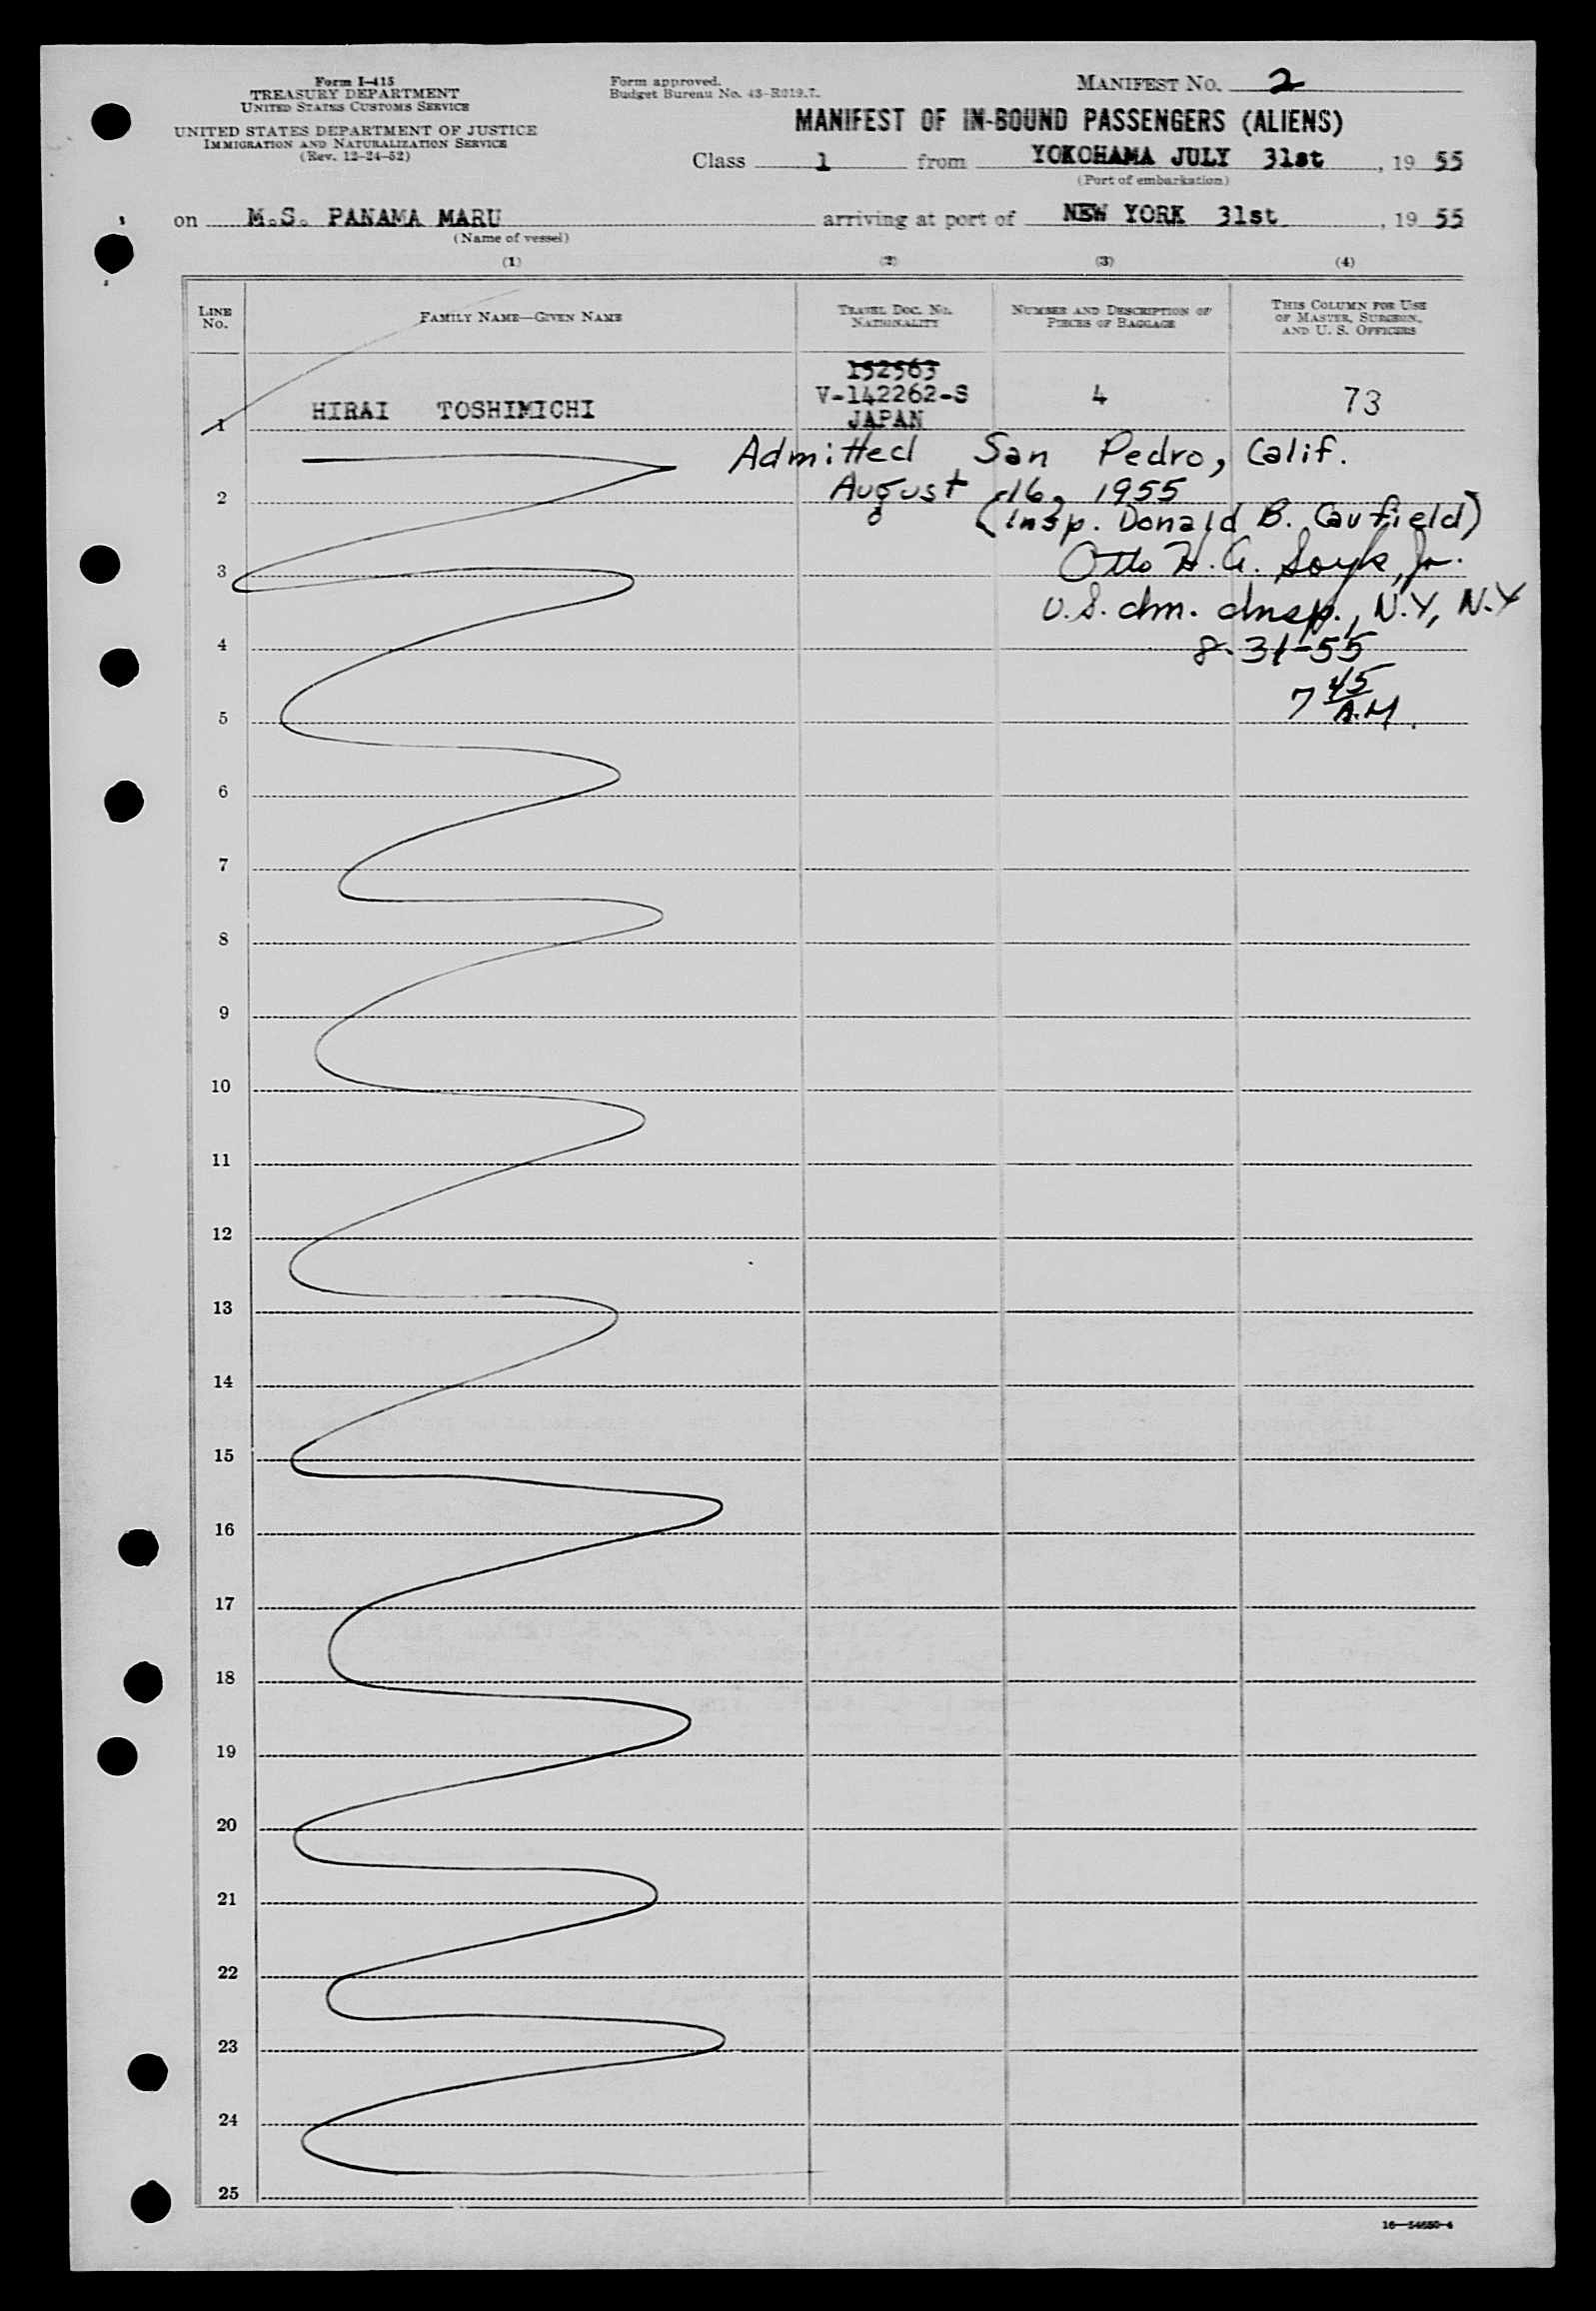 Form I-415
TREASURY DEPARTMENT
UNITED STATES CUSTOMS SERVICE
UNITED STATES DEPARTMENT OF JUSTICE
IMMIGRATION AND NATURALIZATION SERVICE
(Rev. 12-24-52)
Form approved.
Budget Bureau No. 43-R019.7.
MANIFEST NO. 2
MANIFEST OF IN-BOUND PASSENGERS (ALIENS)
Class 1 from YOKOHAMA JULY 31st, 19 55
(Port of embarkation)
on M.S. PANAMA MARU arriving at port of NEW YORK 31st, 19 55
(Name of vessel)
(1) (2) (3) (4)
LINE NO. FAMILY NAME—GIVEN NAME TRAVEL DOC. NO. NATIONALITY NUMBER AND DESCRIPTION OF PIECES OF BAGGAGE THIS COLUMN FOR USE OF MASTER, SURGEON, AND U. S. OFFICERS
152563
V-142262-S
1 HIRAI TOSHIMICHI JAPAN 4 73
Admitted San Pedro, Calif.
2 August 16, 1955
(Insp. Donald B. Caufield)
3 Otto H. A. Soyk, Jr.
U.S. Im. Insp., N.Y, N.Y
4 8-31-55
5 7 45 A.M.
6
7
8
9
10
11
12
13
14
15
16
17
18
19
20
21
22
23
24
25
16—54650-4